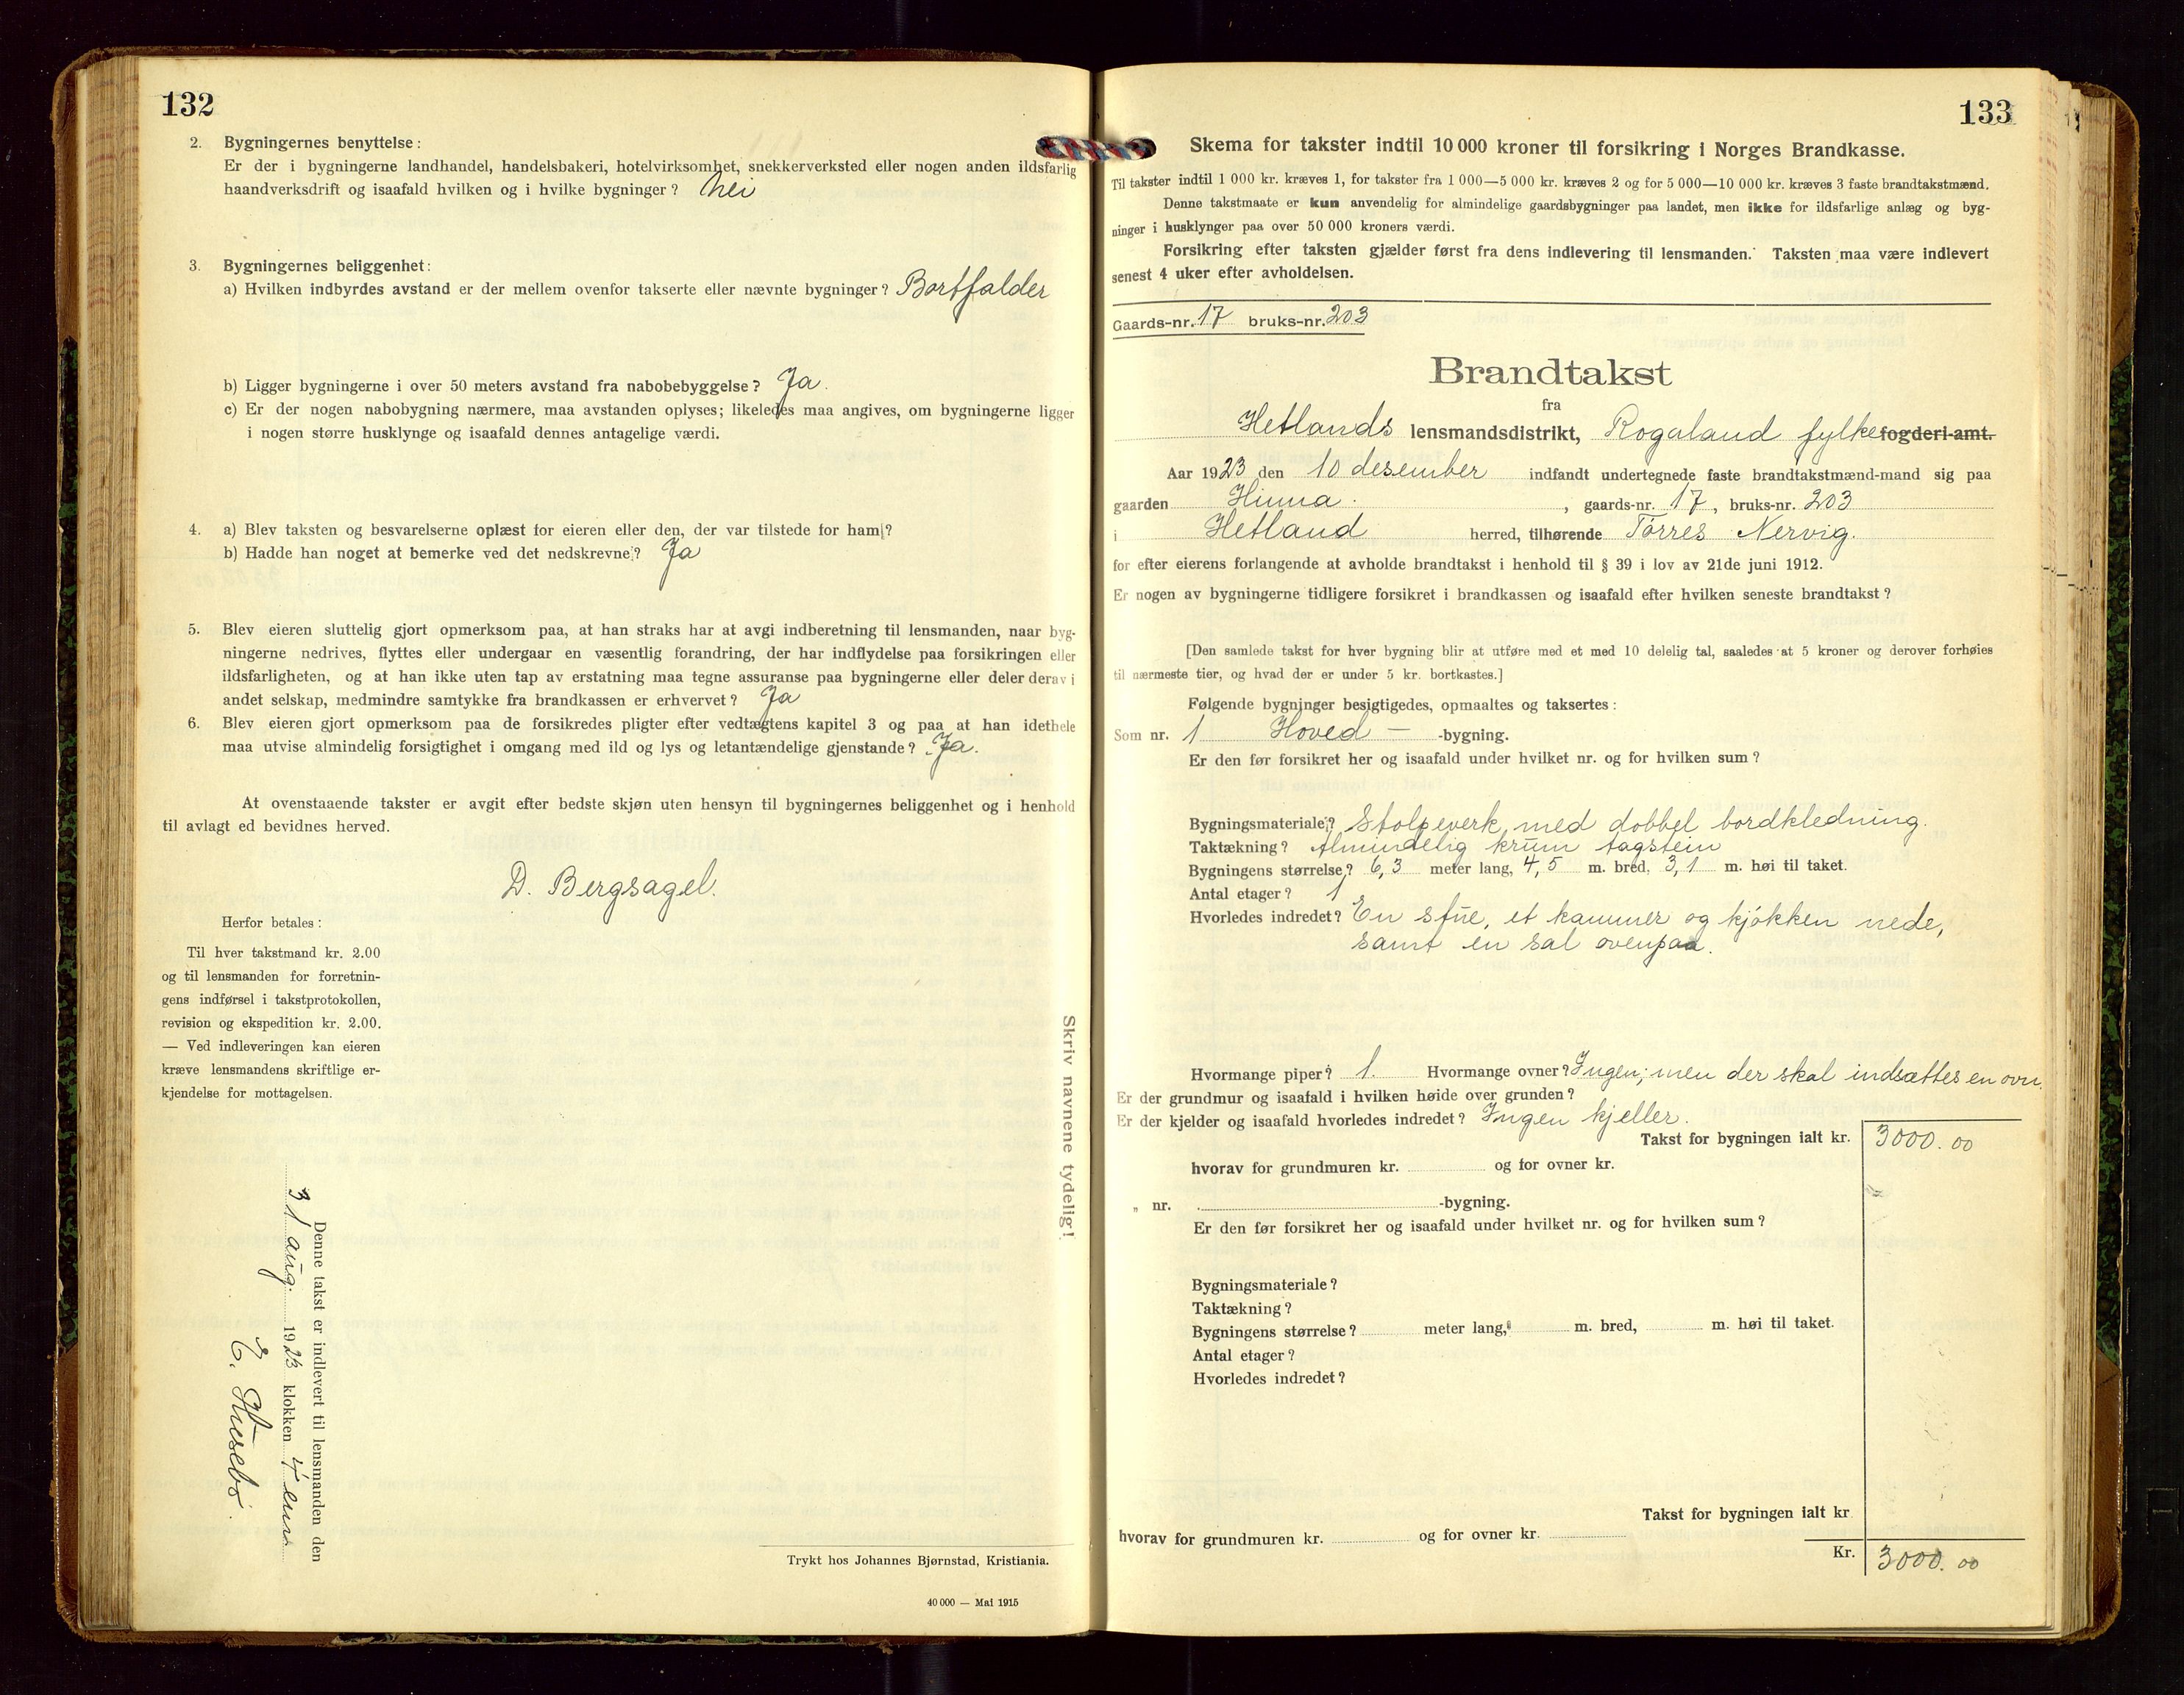 132
2. Bygningernes benyttelse:
Er der i bygningerne landhandel, handelsbakeri, hotelvirksomhet, snekkerverksted eller nogen anden ildsfarlig
haandverksdrift og isaafald hvilken og i hvilke bygninger? Nei
3. Bygningernes beliggenhet:
a) Hvilken indbyrdes avstand er der mellem ovenfor takserte eller nævnte bygninger? Bortfalder
b) Ligger bygningerne i over 50 meters avstand fra nabobebyggelse? Ja.
c) Er der nogen nabobygning nærmere, maa avstanden oplyses; likeledes maa angives, om bygningerne ligger
i nogen større husklynge og isaafald dennes antagelige værdi.
4. a) Blev taksten og besvarelserne oplæst for eieren eller den, der var tilstede for ham?
b) Hadde han noget at bemerke ved det nedskrevne? Ja
5. Blev eieren sluttelig gjort opmerksom paa, at han straks har at avgi indberetning til lensmanden, naar byg-
ningerne nedrives, flyttes eller undergaar en væsentlig forandring, der har indflydelse paa forsikringen eller
ildsfarligheten, og at han ikke uten tap av erstatning maa tegne assuranse paa bygningerne eller deler derav i
andet selskap, medmindre samtykke fra brandkassen er erhvervet? Ja
6. Blev eieren gjort opmerksom paa de forsikredes pligter efter vedtægtens kapitel 3 og paa at han idethele
maa utvise almindelig forsigtighet i omgang med ild og lys og letantændelige gjenstande? Ja.
At ovenstaaende takster er avgit efter bedste skjøn uten hensyn til bygningernes beliggenhet og i henhold
til avlagt ed bevidnes herved.
D. Bergsagel.
Herfor betales:
Til hver takstmand kr. 2.00
og til lensmanden for forretnin-
gens indførsel i takstprotokollen,
revision og ekspedition kr. 2.00.
— Ved indleveringen kan eieren
kræve lensmandens skriftlige er-
kjendelse for mottagelsen.
Denne takst er indlevert til lensmanden den
31 aug. 1923 klokken 4 em
E. Husebø.
Skriv navnene tydelig!
Trykt hos Johannes Bjørnstad, Kristiania.
40 000 — Mai 1915
133
Skema for takster indtil 10 000 kroner til forsikring i Norges Brandkasse.
Til takster indtil 1 000 kr. kræves 1, for takster fra 1 000—5 000 kr. kræves 2 og for 5 000—10 000 kr. kræves 3 faste brandtakstmænd.
Denne takstmaate er kun anvendelig for almindelige gaardsbygninger paa landet, men ikke for ildsfarlige anlæg og byg-
ninger i husklynger paa over 50 000 kroners værdi.
Forsikring efter taksten gjælder først fra dens indlevering til lensmanden. Taksten maa være indlevert
senest 4 uker efter avholdelsen.
Gaards-nr. 17 bruks-nr. 203
Brandtakst
fra
Hetlands lensmandsdistrikt, Rogaland fylke fogderi-amt.
Aar 1923 den 10 desember indfandt undertegnede faste brandtakstmænd-mand sig paa
gaarden Hinna. , gaards-nr. 17, bruks-nr. 203
i Hetland herred, tilhørende Tørres Nervig.
for efter eierens forlangende at avholde brandtakst i henhold til § 39 i lov av 21de juni 1912.
Er nogen av bygningerne tidligere forsikret i brandkassen og isaafald efter hvilken seneste brandtakst?
[Den samlede takst for hver bygning blir at utføre med et med 10 delelig tal, saaledes at 5 kroner og derover forhøies
til nærmeste tier, og hvad der er under 5 kr. bortkastes.]
Følgende bygninger besigtigedes, opmaaltes og taksertes:
Som nr. 1 Hoved — -bygning.
Er den før forsikret her og isaafald under hvilket nr. og for hvilken sum?
Bygningsmateriale? Stolpeverk med dobbel bordkledning.
Taktækning? Almindelig krum tagstein
Bygningens størrelse? 6,3 meter lang, 4,5 m. bred, 3,1 m. høi til taket.
Antal etager? 1
Hvorledes indredet? En stue, et kammer og kjøkken nede,
samt en sal ovenpaa.
Hvormange piper? 1. Hvormange ovner? Ingen; men der skal indsættes en ovn.
Er der grundmur og isaafald i hvilken høide over grunden?
Er der kjelder og isaafald hvorledes indredet? Ingen kjeller.
Takst for bygningen ialt kr. 3000.00
hvorav for grundmuren kr. og for ovner kr.
„ nr. -bygning.
Er den før forsikret her og isaafald under hvilket nr. og for hvilken sum?
Bygningsmateriale?
Taktækning?
Bygningens størrelse? meter lang, m. bred, m. høi til taket.
Antal etager?
Hvorledes indredet?
Takst for bygningen ialt kr
hvorav for grundmuren kr. og for ovner kr.
Kr. 3000.00